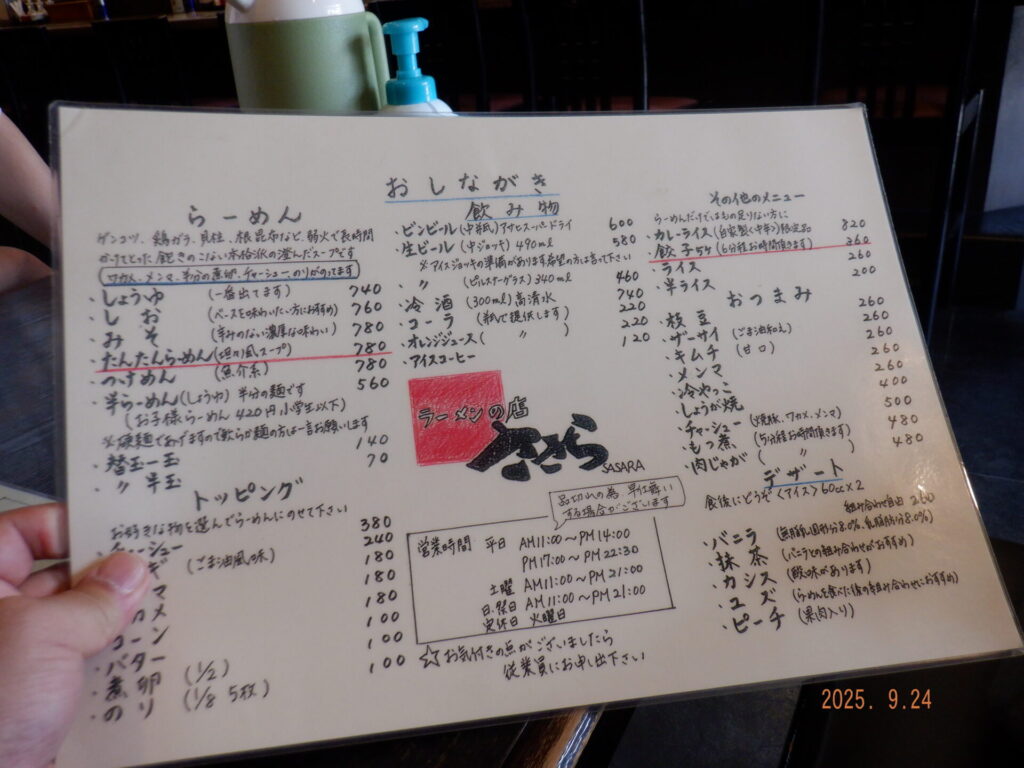 おしながき
らーめん
ゲンコツ、鶏ガラ、貝柱、根昆布など、弱火で長時間
かけてとった飽きのこない本格派の澄んだスープです
ワカメ、メンマ、半分の煮卵、チャーシュー、のりがのってます
・しょうゆ (一番出てます) 740
・しお (ベースを味わいたい方におすすめ) 760
・みそ (辛みのない濃厚な味わい) 780
・たんたんらーめん (坦々風スープ) 780
・つけめん (魚介系) 780
・半らーめん (しょうゆ) 半分の麺です 560
(お子様らーめん 420円 小学生以下)
※硬麺であげますので軟らか麺の方は一言お願いします
・替玉一玉 140
・〃 半玉 70
トッピング
お好きな物を選んでらーめんにのせて下さい
チャーシュー 380
ギ (ごま油風の味) 240
マ 180
カメ 180
コーン 180
・バター 100
・煮卵 (1/2) 100
・のり (1/8 5枚) 100
飲み物
・ビンビール (中瓶) アサヒスーパードライ 600
・生ビール (中ジョッキ) 490ml 580
※アイスジョッキの準備があります希望の方は言って下さい
・〃 (ピルスナーグラス) 340ml 460
・冷酒 (300ml) 高清水 740
・コーラ (瓶で提供します) 220
・オレンジジュース (〃) 220
・アイスコーヒー 120
ラーメンの店
ささら
SASARA
品切れの為 早仕舞い
する場合がございます
営業時間 平日 AM11:00〜PM14:00
PM17:00〜PM22:30
土曜 AM11:00〜PM21:00
日・祭日 AM11:00〜PM21:00
定休日 火曜日
☆お気付きの点がございましたら
従業員にお申し出下さい
その他のメニュー
らーめんだけではもの足りない方に
・カレーライス (自家製<中辛>)限定品 820
・餃子5ケ (6分程お時間頂きます) 360
・ライス 260
・半ライス 200
おつまみ
・枝豆 260
・ザーサイ (ごま油和え) 260
・キムチ (甘口) 260
・メンマ 260
・冷やっこ 260
・しょうが焼 400
・チャーシュー (焼豚、ワカメ、メンマ) 500
・もつ煮 (5分程お時間頂きます) 480
・肉じゃが (〃) 480
デザート
食後にどうぞ<アイス>60cc×2
組み合わせ自由 260
・バニラ (無脂乳固形分8.0%、乳脂肪分8.0%)
・抹茶 (バニラとの組み合わせがおすすめ)
・カシス (酸味があります)
・ユズ (らーめんを食べた後の組み合わせにおすすめ)
・ピーチ (果肉入り)
2025. 9.24